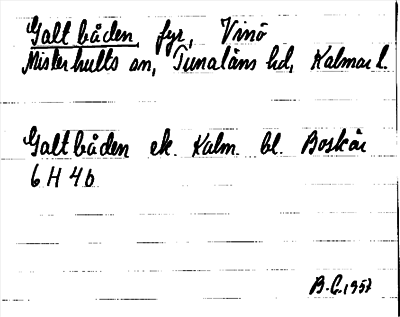 Galtbåden, fyr, Vinö
Misterhults sn, Tunaläns hd, Kalmar l.
Galtbåden ek. Kalm. bl. Boskär
6 H 4b
B.G. 1957